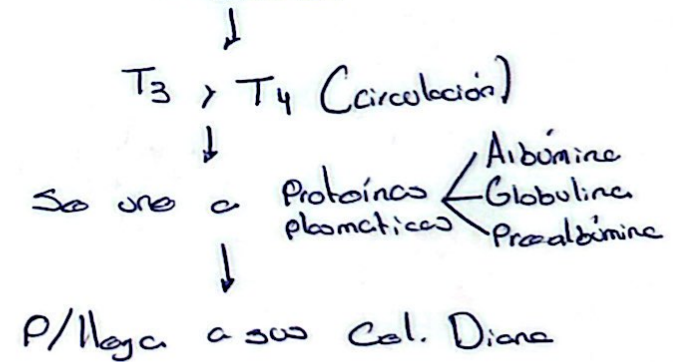 T3 y T4 (circulación)
Se une a Proteínas plasmáticas
Albúmina
Globulina
Prealbúmina
P/llega a sus Cel. Diana